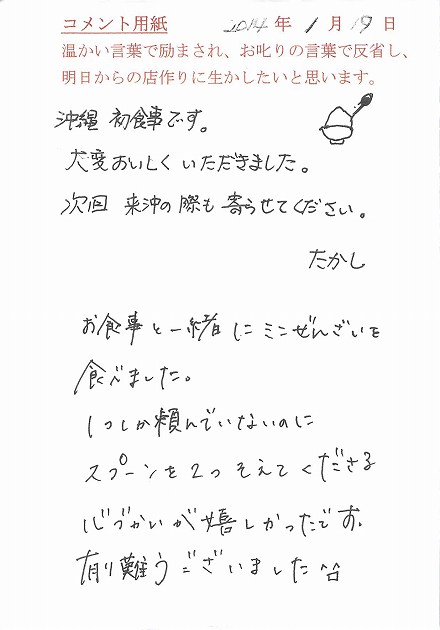 コメント用紙 2014年1月19日
温かい言葉で励まされ、お叱りの言葉で反省し、
明日からの店作りに生かしたいと思います。
沖縄 初食事です。
大変おいしくいただきました。
次回 来沖の際も寄らせてください。
たかし
お食事と一緒にミニぜんざいを
食べました。
1つしか頼んでいないのに
スプーンを2つそえてくださる
心づかいが嬉しかったです。
有り難うございました^^